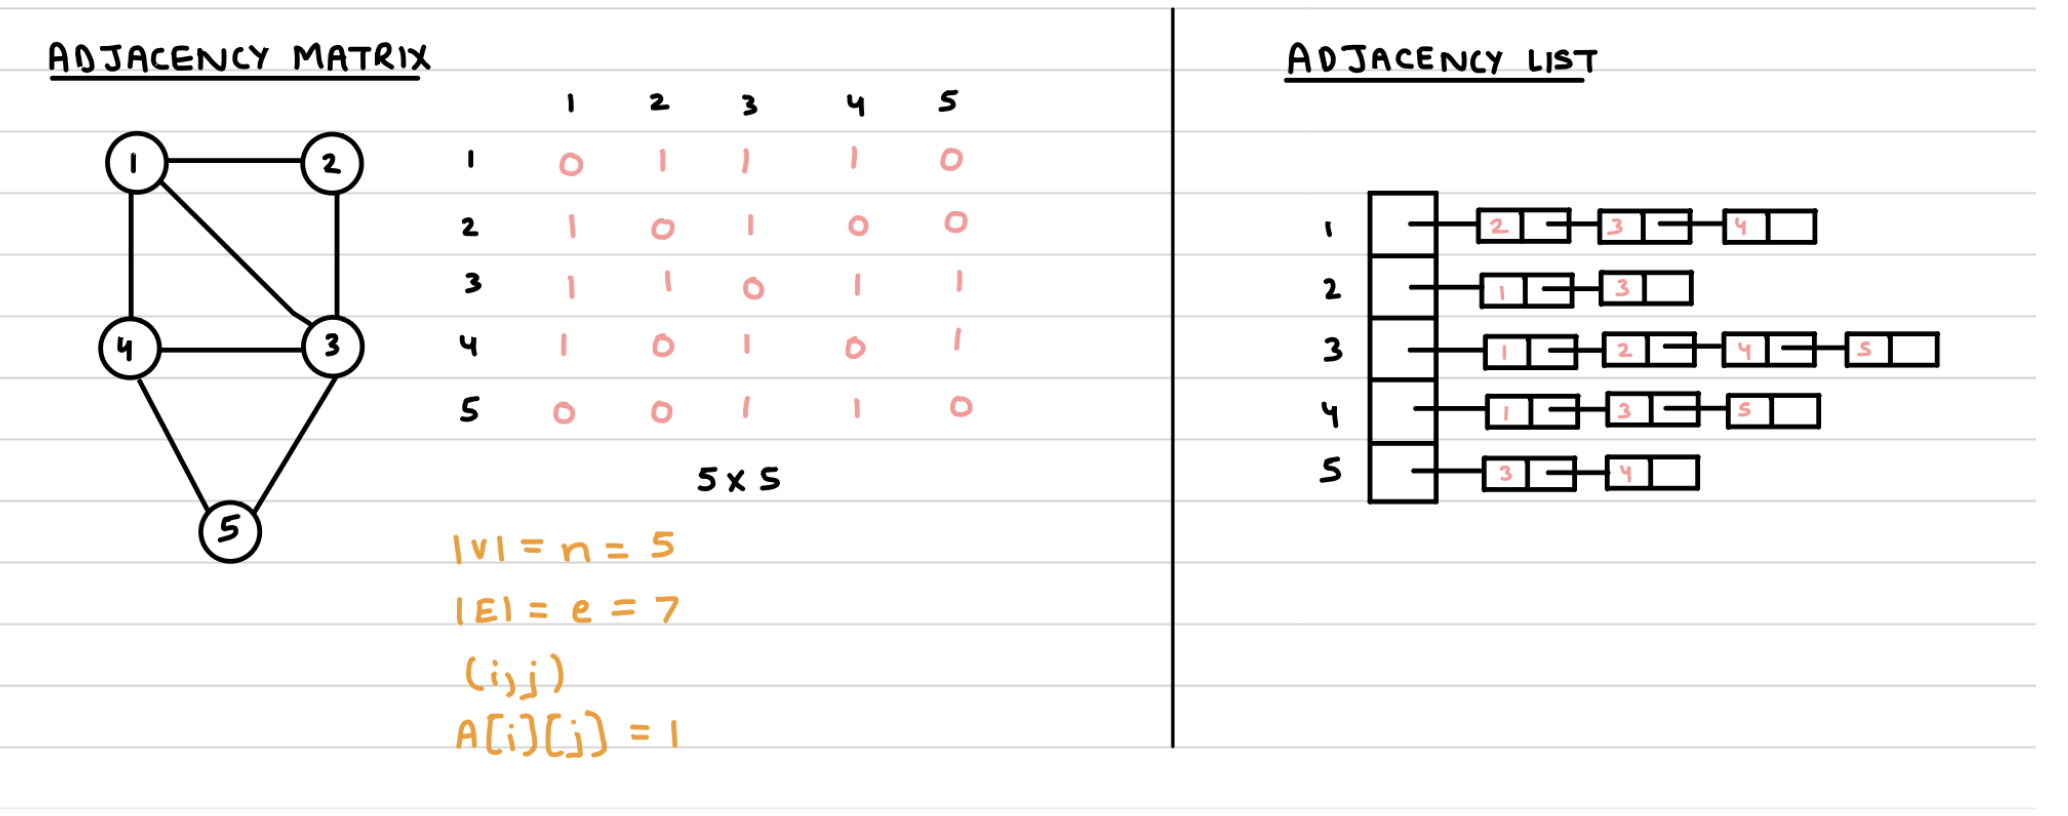 ADJACENCY MATRIX
1 2 3 4 5
1 0 1 1 1 0
2 1 0 1 0 0
3 1 1 0 1 1
4 1 0 1 0 1
5 0 0 1 1 0
5 x 5
1 2
4 3
5
|V| = n = 5
|E| = e = 7
(i,j)
A[i][j] = 1
ADJACENCY LIST
1 2 3 4
2 1 3
3 1 2 4 5
4 1 3 5
5 3 4